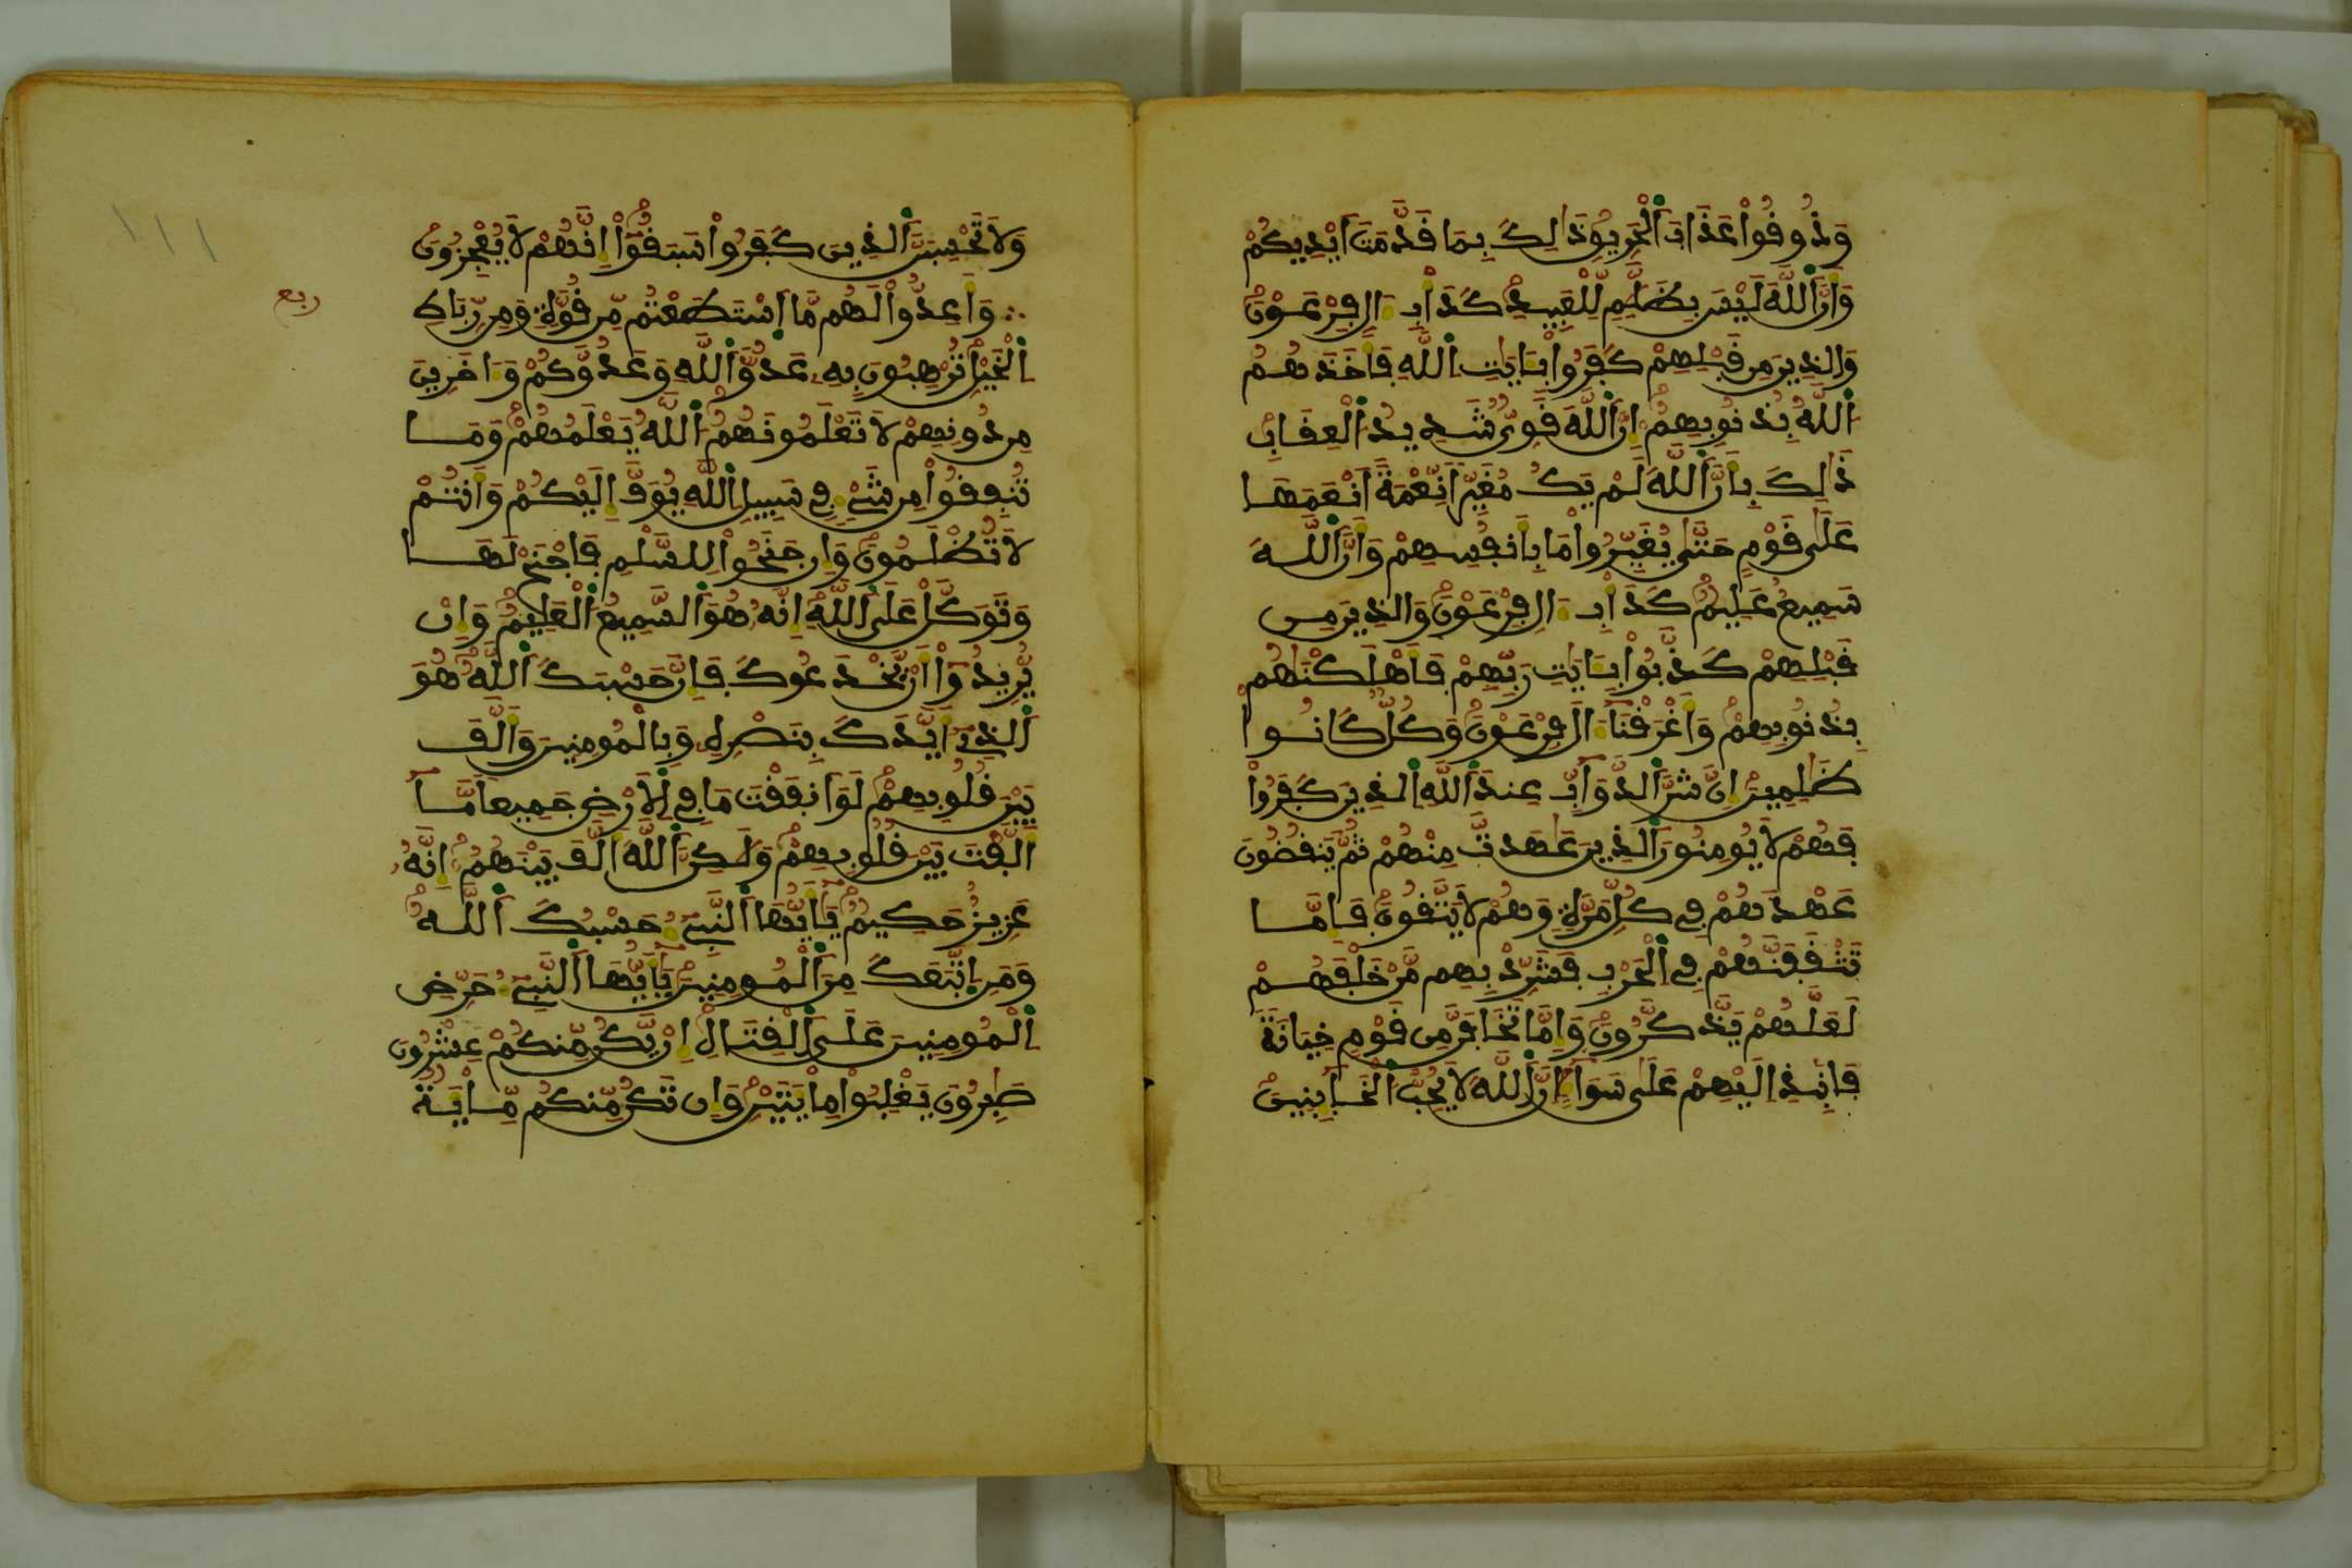 وَذُوقُواْ عَذَابَ اَ۬لْحَرِيقِ ذَٰلِكَ بِمَا قَدَّمَتَ اَيْدِيكُمْ
وَأَنَّ اَ۬للَّهَ لَيْسَ بِظَلَّٰمٖ لِّلْعَبِيدِ كَدَأْبِ ءَالِ فِرْعَوْنَ
وَالذِينَ مِن قَبْلِهِمْ كَفَرُواْ بِـَٔايَٰتِ اِ۬للَّهِ فَأَخَذَهُمُ
اُ۬للَّهُ بِذُنُوبِهِمُۥٓ إِنَّ اَ۬للَّهَ قَوِيّٞ شَدِيدُ اُ۬لْعِقَابِ
ذَٰلِكَ بِأَنَّ اَ۬للَّهَ لَمْ يَكُ مُغَيِّراٗ نِّعْمَةً اَنْعَمَهَا
عَلَىٰ قَوْمٍ حَتَّىٰ يُغَيِّرُواْ مَا بِأَنفُسِهِمْ وَأَنَّ اَ۬للَّهَ
سَمِيعٌ عَلِيمٞ كَدَأْبِ ءَالِ فِرْعَوْنَ وَالذِينَ مِن
قَبْلِهِمْ كَذَّبُواْ بِـَٔايَٰتِ رَبِّهِمْ فَأَهْلَكْنَٰهُم
بِذُنُوبِهِمْ وَأَغْرَقْنَآ ءَالَ فِرْعَوْنَ وَكُلّٞ كَانُواْ
ظَٰلِمِينَ إِنَّ شَرَّ اَ۬لدَّوَآبِّ عِندَ اَ۬للَّهِ اِ۬لذِينَ كَفَرُواْ
فَهُمْ لَا يُومِنُونَ اَ۬لذِينَ عَٰهَدتَّ مِنْهُمْ ثُمَّ يَنقُضُونَ
عَهْدَهُمْ فِي كُلِّ مَرَّةٖ وَهُمْ لَا يَتَّقُونَ فَإِمَّا
تَثْقَفَنَّهُمْ فِي اِ۬لْحَرْبِ فَشَرِّدْ بِهِم مَّنْ خَلْفَهُمْ
لَعَلَّهُمْ يَذَّكَّرُونَ وَإِمَّا تَخَافَنَّ مِن قَوْمٍ خِيَانَةٗ
فَانۢبِذِ اِلَيْهِمْ عَلَىٰ سَوَآءٍ اِنَّ اَ۬للَّهَ لَا يُحِبُّ اُ۬لْخَآئِنِينَ
١١١
وَلَا تَحْسِبَنَّ اَ۬لذِينَ كَفَرُواْ سَبَقُوٓاْ إِنَّهُمْ لَا يُعْجِزُونَ
ربع
وَأَعِدُّواْ لَهُم مَّا اَ۪سْتَطَعْتُم مِّن قُوَّةٖ وَمِن رِّبَاطِ
اِ۬لْخَيْلِ تُرْهِبُونَ بِهِۦ عَدُوَّ اَ۬للَّهِ وَعَدُوَّكُمْ وَءَاخَرِينَ
مِن دُونِهِمْ لَا تَعْلَمُونَهُمُ اُ۬للَّهُ يَعْلَمُهُمْ وَمَا
تُنفِقُواْ مِن شَےْءٖ فِي سَبِيلِ اِ۬للَّهِ يُوَفَّ إِلَيْكُمْ وَأَنتُمْ
لَا تُظْلَمُونَ وَإِن جَنَحُواْ لِلسَّلْمِ فَاجْنَحْ لَهَا
وَتَوَكَّلْ عَلَى اَ۬للَّهِ إِنَّهُۥ هُوَ اَ۬لسَّمِيعُ اُ۬لْعَلِيمُ وَإِنْ
يُّرِيدُوٓاْ أَنْ يَّخْدَعُوكَ فَإِنَّ حَسْبَكَ اَ۬للَّهُ هُوَ
اَ۬لذِےٓ أَيَّدَكَ بِنَصْرِهِۦ وَبِالْمُومِنِينَ وَأَلَّفَ
بَيْنَ قُلُوبِهِمْ لَوَ اَنفَقْتَ مَا فِي اِ۬لَارْضِ جَمِيعاٗ مَّآ
أَلَّفْتَ بَيْنَ قُلُوبِهِمْ وَلَٰكِنَّ اَ۬للَّهَ أَلَّفَ بَيْنَهُمُۥٓ إِنَّهُۥ
عَزِيزٌ حَكِيمٞ يَٰٓأَيُّهَا اَ۬لنَّبِےٓءُ حَسْبُكَ اَ۬للَّهُ
وَمَنِ اِ۪تَّبَعَكَ مِنَ اَ۬لْمُومِنِينَ يَٰٓأَيُّهَا اَ۬لنَّبِےٓءُ حَرِّضِ
اِ۬لْمُومِنِينَ عَلَى اَ۬لْقِتَالِ إِنْ يَّكُن مِّنكُمْ عِشْرُونَ
صَٰبِرُونَ يَغْلِبُواْ مِاْيَتَيْنِ وَإِن تَكُن مِّنكُم مِّاْيَةٞ